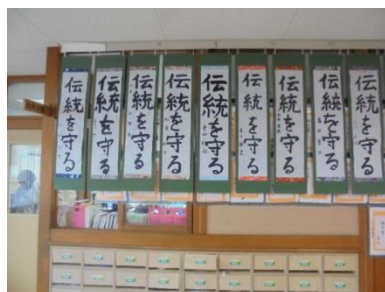 伝統を守る
伝統を守る
伝統を守る
伝統を守る
伝統を守る
伝統を守る
伝統を守る
伝統を守る
伝統を守る